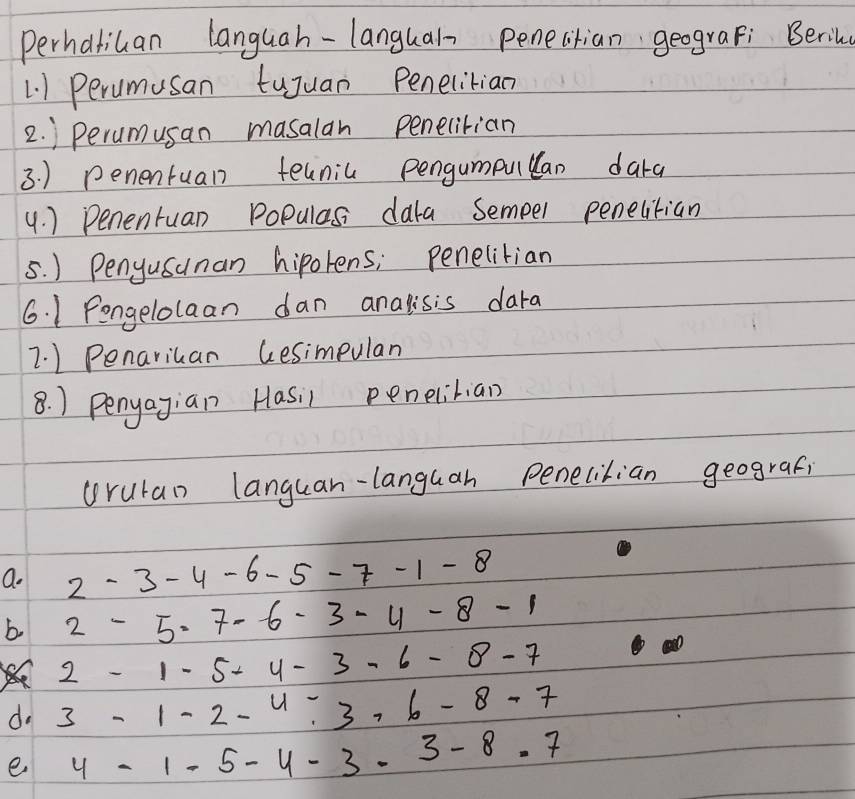 Perhatikan langkah-langkah Penelitian geografi Beriku
1.) Perumusan tujuan Penelitian
2.) Perumusan masalah penelitian
3.) Penentuan teknik pengumpulkan data
4.) Penentuan Populasi data Sempel penelitian
5.) Penyusunan hipotensi penelitian
6.) Pengelolaan dan analisis data
7.) Penarikan kesimpulan
8.) Penyajian Hasil penelitian
Urutan langkah-langkah Penelitian geografi
a. 2 - 3 - 4 - 6 - 5 - 7 - 1 - 8
b. 2 - 5 - 7 - 6 - 3 - 4 - 8 - 1
2 - 1 - 5 - 4 - 3 - 6 - 8 - 7
d. 3 - 1 - 2 - 4 - 3 - 6 - 8 - 7
e. 4 - 1 - 5 - 4 - 3 - 3 - 8 - 7